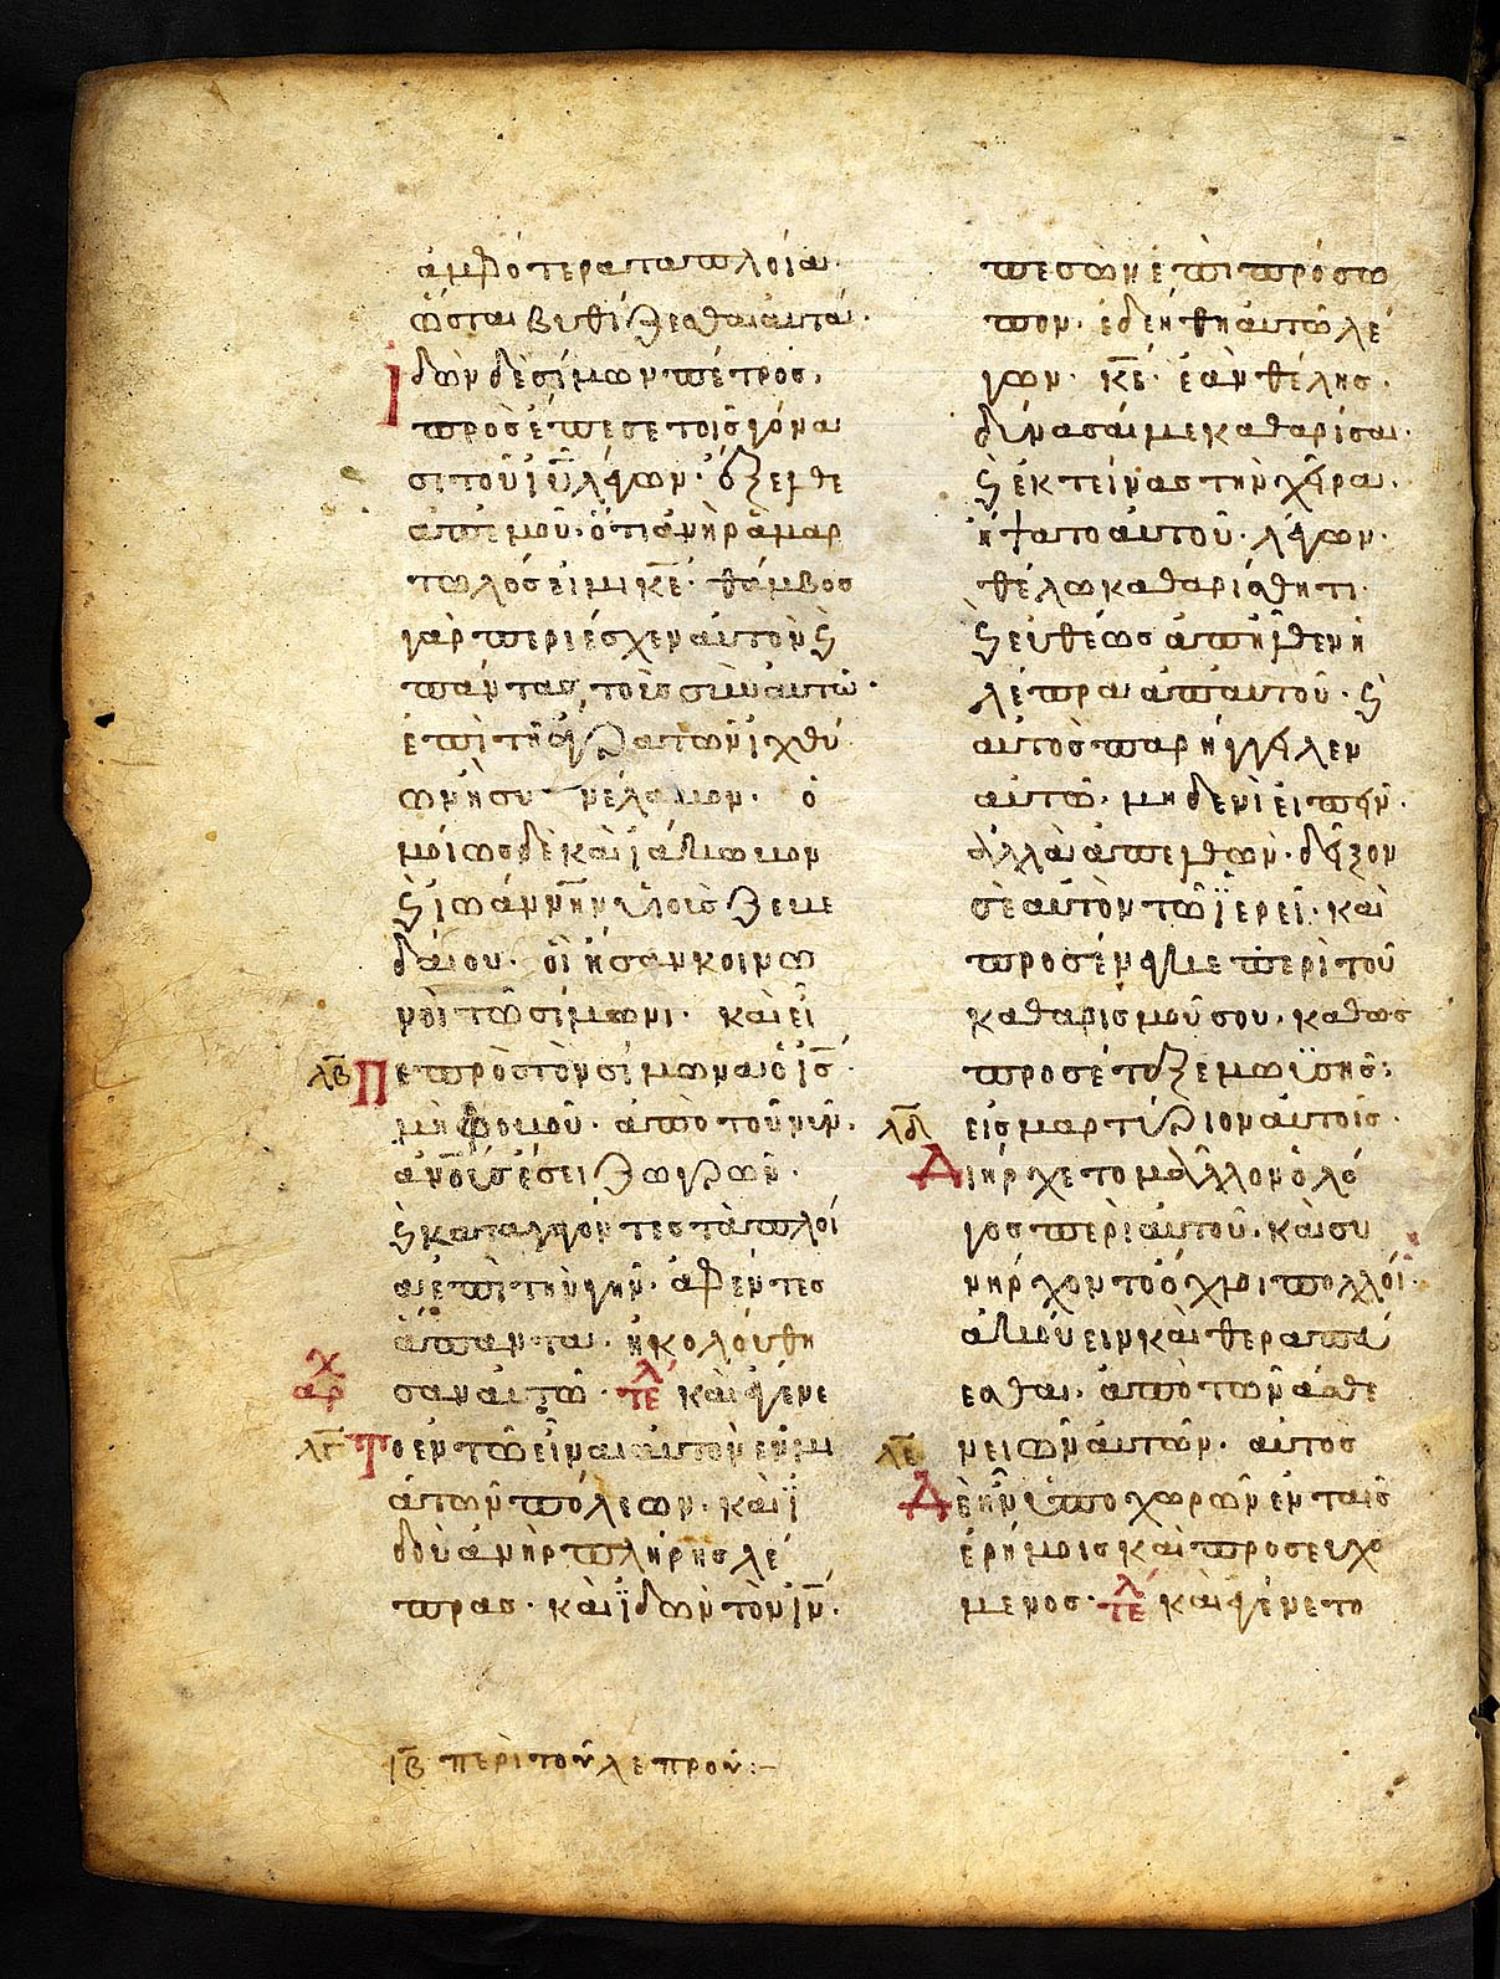 ἀμφότερα τα πλοῖα·
ὥσται βυθίζεσθαι αυτά·
Ιδὼν δὲ σίμων πέτρος,
προσέπεσε τοῖς γόνα
σι τοῦ ἰῡ λέγων· ἔξελθε
απ' εμοῦ· ὅτι ἀνὴρ ἁμαρ
τωλός εἰμι κ̅ε̅· θάμβος
γὰρ περιέσχεν αὐτὸν ϛ
πάντας τοὺς σὺν αυτῶ·
ἐπὶ τῆ ἄγρα τῶν ἰχθύ
ων ἧ συνέλαβον· ὁ
μοίως δὲ καὶ ἰάκωβον
ϛ ἰωάννην υἱοὺς ζεβε
δαίου· οἳ ἦσαν κοινω
νοὶ τῶ σίμωνι· καὶ εἶ
λ̅β̅ Πε πρὸς τὸν σίμωνα ὁ ι̅ς̅·
μὴ φοβοῦ· ἀπὸ τοῦ νῦν·
ἀν̅ο̅υ̅ς ἔσει ζωγρῶν·
ϛ καταγαγόντες τὰ πλοῖ
α ἐπὶ τὴν γῆν· ἀφέντες
ἅπαντα· ἠκολούθη
αρχ σαν αὐτῶ· τελ καὶ ἐγένε
λ̅γ̅ Το ἐν τῶ εἶναι αυτὸν ἐν μι
ᾶ τῶν πόλεων· καὶ ϊ
δοὺ ἀνὴρ πλήρης λέ
πρας· καὶ ϊδὼν τὸν ι̅ν̅·
πεσὼν ἐπὶ πρόσω
πον· ἐδεήθη αυτῶ λέ
γων· κ̅ε̅· ἐὰν θέλης·
δύνασαί με καθαρίσαι·
ϛ ἐκτείνας τὴν χεῖρα·
ἥψατο αὐτοῦ· λέγων·
θέλω καθαρίσθητι·
ϛ εὐθέως ἀπῆλθεν ἡ
λέπρα ἀπ' αυτοῦ· ϛ
αὐτὸς παρήγγειλεν
αὐτῶ· μηδενὶ εἰπεῖν·
ἀλλὰ ἀπελθὼν· δεῖξον
σὲ αὐτὸν τῶ ϊερεῖ· καὶ
προσένεγκε περὶ τοῦ
καθαρισμοῦ σου· καθως
προσέταξε μωϋσῆς·
λ̅δ̅ εἰς μαρτύριον αὐτοῖς·
Διήρχετο μᾶλλον ὁ λό
γος περὶ αὐτοῦ· καὶ συ
νήρχοντο ὄχλοι πολλοί·
ἀκούειν καὶ θεραπεύ
εσθαι· ἀπὸ τῶν ἀσθε
λ̅ε̅ νειῶν αὐτῶν· αὐτος
Δὲ ἦν ὑποχωρῶν ἐν ταῖς
ἐρήμοις καὶ προσευχό
μενος· τελ καὶ ἐγένετο
ι̅β̅ περὶ τοῦ λεπροῦ:–